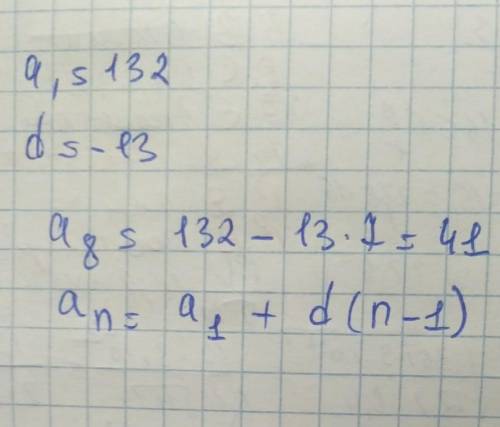 a₁ = 132
d = -13
a₈ = 132 - 13 · 7 = 41
aₙ = a₁ + d(n-1)